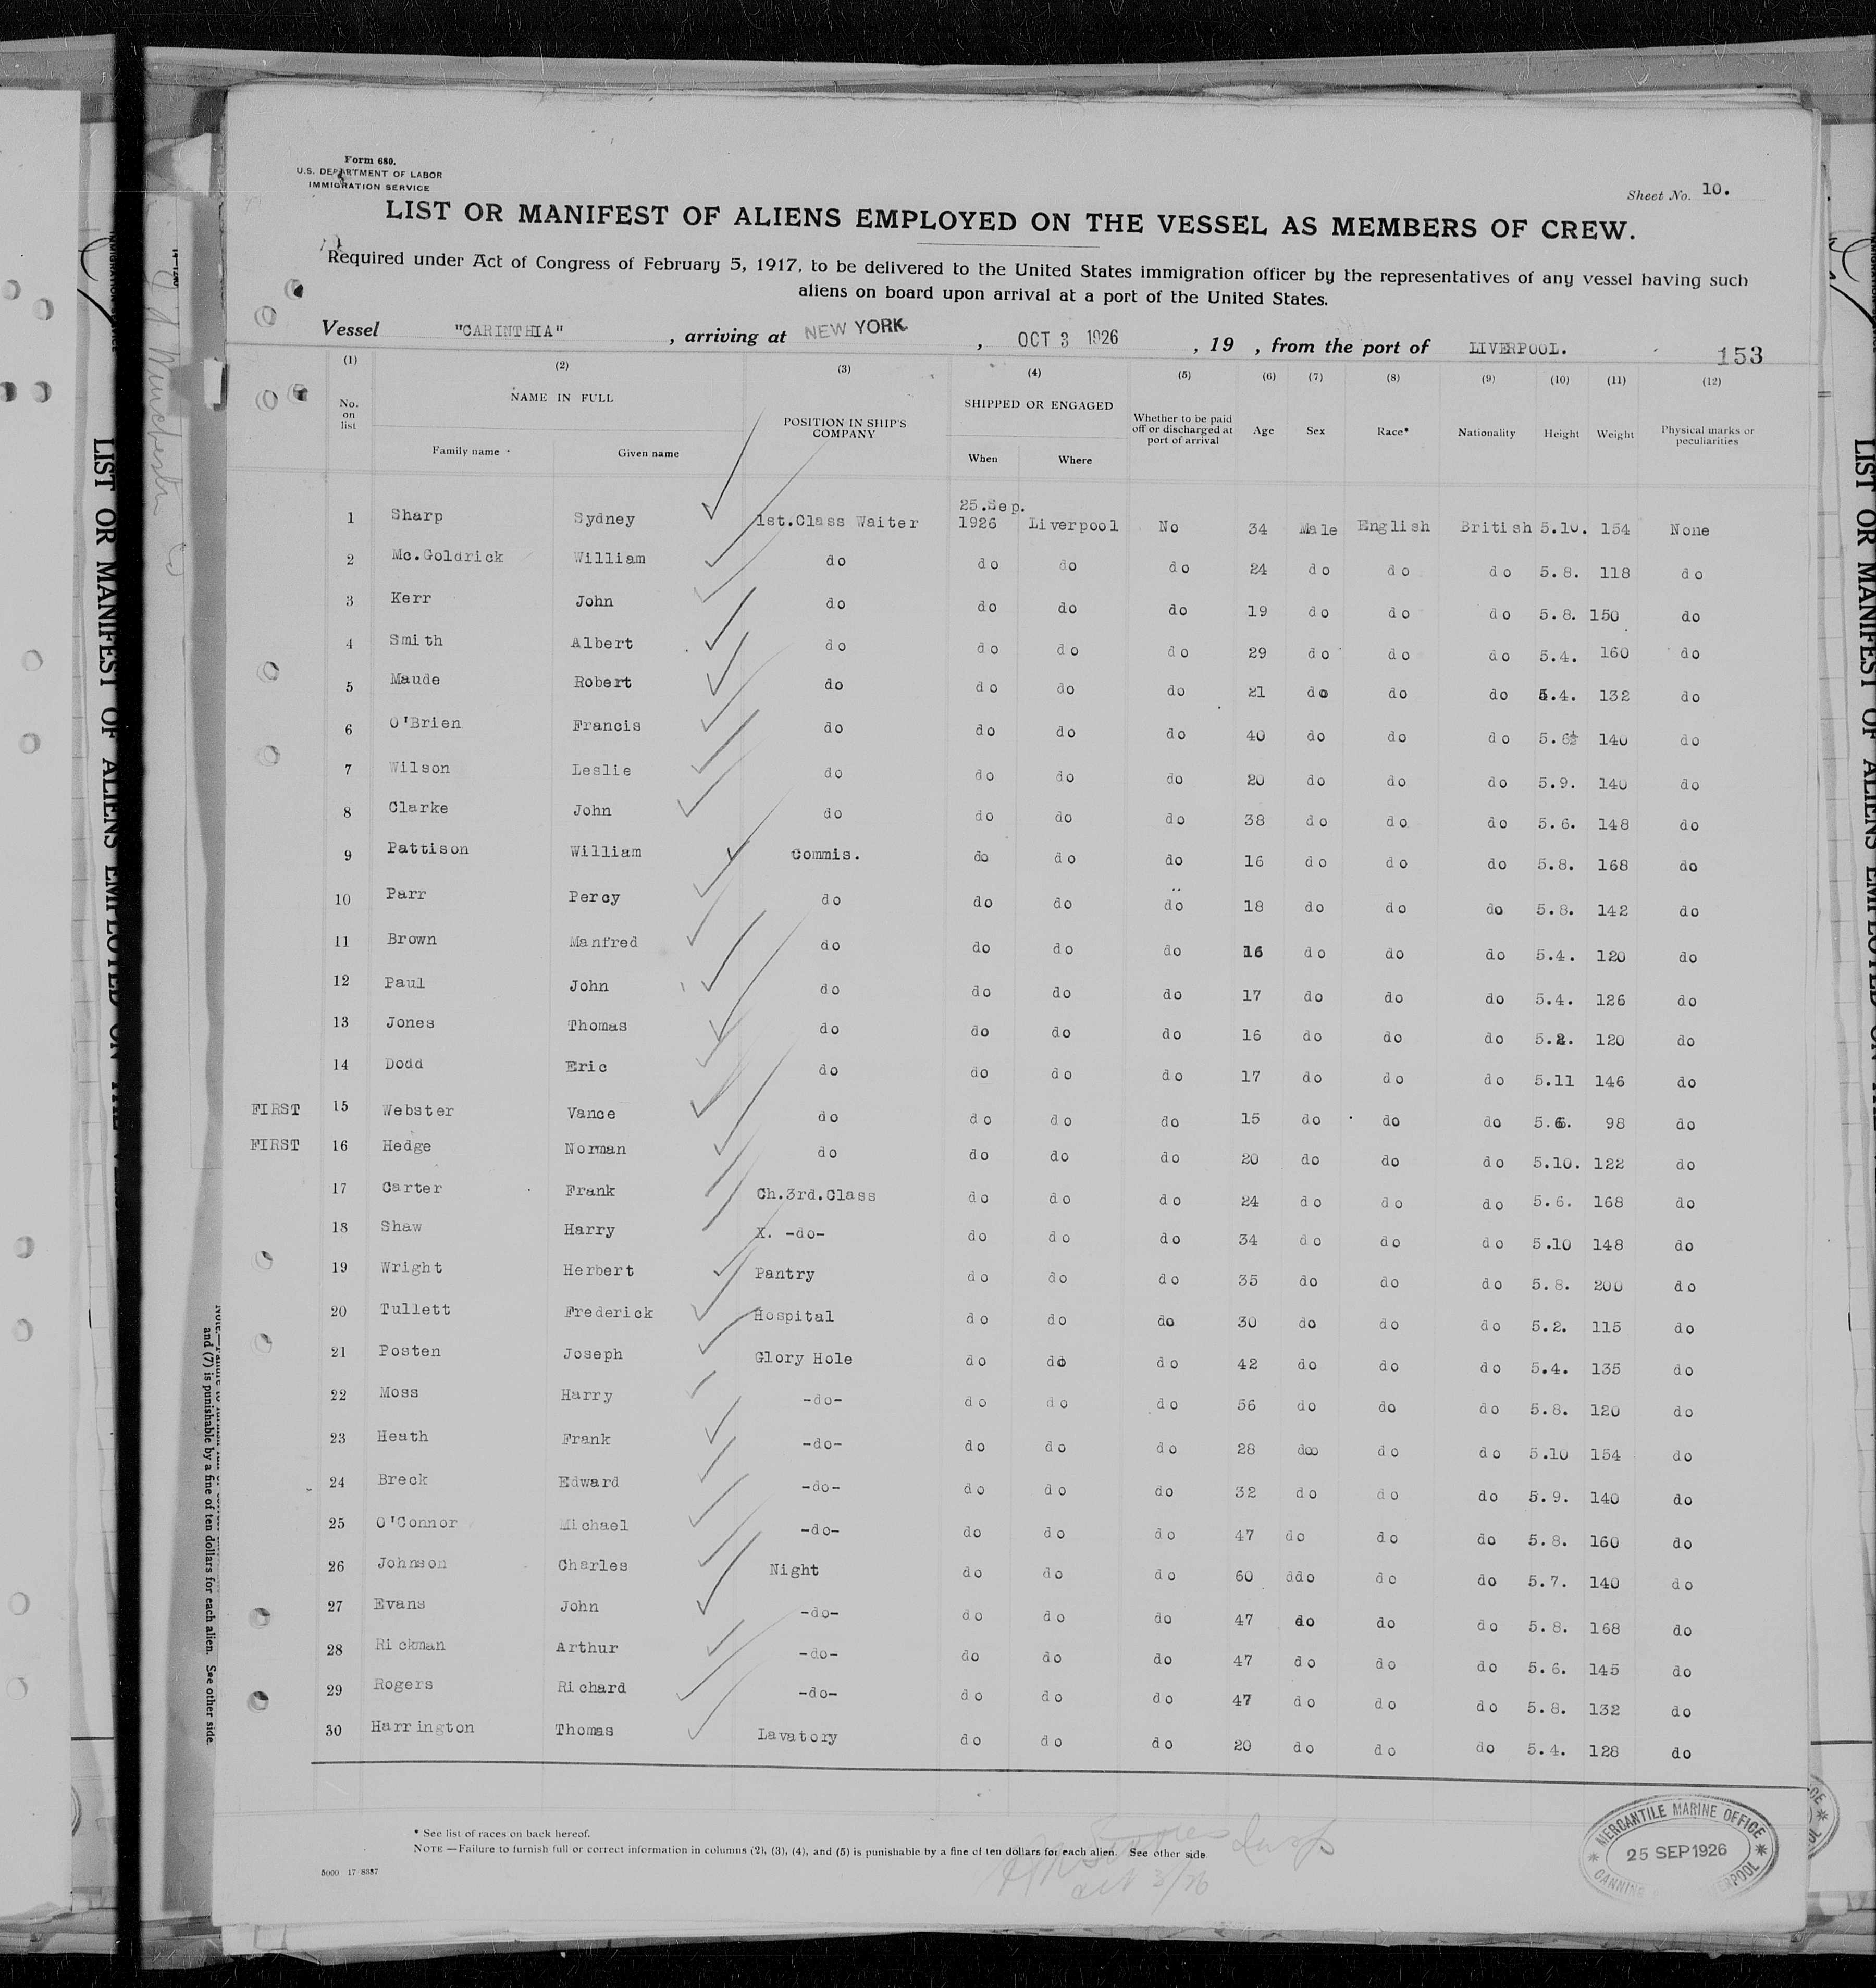 Form 680.
U.S. DEPARTMENT OF LABOR
IMMIGRATION SERVICE
Sheet No. 10.
LIST OR MANIFEST OF ALIENS EMPLOYED ON THE VESSEL AS MEMBERS OF CREW.
Required under Act of Congress of February 5, 1917, to be delivered to the United States immigration officer by the representatives of any vessel having such
aliens on board upon arrival at a port of the United States.
Vessel "CARINTHIA" , arriving at NEW YORK , OCT 3 1926 , 19 , from the port of LIVERPOOL. 153
(1) (2) (3) (4) (5) (6) (7) (8) (9) (10) (11) (12)
No. on list NAME IN FULL Family name Given name POSITION IN SHIP'S COMPANY SHIPPED OR ENGAGED When Where Whether to be paid off or discharged at port of arrival Age Sex Race* Nationality Height Weight Physical marks or peculiarities
1 Sharp Sydney 1st.Class Waiter 25.Sep. 1926 Liverpool No 34 Male English British 5.10. 154 None
2 Mc.Goldrick William do do do do 24 do do do 5.8. 118 do
3 Kerr John do do do do 19 do do do 5.8. 150 do
4 Smith Albert do do do do 29 do do do 5.4. 160 do
5 Maude Robert do do do do 21 do do do 5.4. 132 do
6 O'Brien Francis do do do do 40 do do do 5.6½ 140 do
7 Wilson Leslie do do do do 20 do do do 5.9. 140 do
8 Clarke John do do do do 38 do do do 5.6. 148 do
9 Pattison William Commis. do do do 16 do do do 5.8. 168 do
10 Parr Percy do do do do 18 do do do 5.8. 142 do
11 Brown Manfred do do do do 16 do do do 5.4. 120 do
12 Paul John do do do do 17 do do do 5.4. 126 do
13 Jones Thomas do do do do 16 do do do 5.2. 120 do
14 Dodd Eric do do do do 17 do do do 5.11 146 do
FIRST 15 Webster Vance do do do do 15 do do do 5.6. 98 do
FIRST 16 Hedge Norman do do do do 20 do do do 5.10. 122 do
17 Carter Frank Ch.3rd.Class do do do 24 do do do 5.6. 168 do
18 Shaw Harry X. -do- do do do 34 do do do 5.10 148 do
19 Wright Herbert Pantry do do do 35 do do do 5.8. 200 do
20 Tullett Frederick Hospital do do do 30 do do do 5.2. 115 do
21 Posten Joseph Glory Hole do do do 42 do do do 5.4. 135 do
22 Moss Harry -do- do do do 56 do do do 5.8. 120 do
23 Heath Frank -do- do do do 28 doo do do 5.10 154 do
24 Breck Edward -do- do do do 32 do do do 5.9. 140 do
25 O'Connor Michael -do- do do do 47 do do do 5.8. 160 do
26 Johnson Charles Night do do do 60 ddo do do 5.7. 140 do
27 Evans John -do- do do do 47 do do do 5.8. 168 do
28 Rickman Arthur -do- do do do 47 do do do 5.6. 145 do
29 Rogers Richard -do- do do do 47 do do do 5.8. 132 do
30 Harrington Thomas Lavatory do do do 20 do do do 5.4. 128 do
* See list of races on back hereof.
NOTE.—Failure to furnish full or correct information in columns (2), (3), (4), and (5) is punishable by a fine of ten dollars for each alien. See other side
5000 17/8387
Oct 3/26
MERCANTILE MARINE OFFICE
25 SEP 1926
CANNING LIVERPOOL
and (7) is punishable by a fine of ten dollars for each alien. See other side.
LIST OR MANIFEST OF ALIENS EMPLOYED ON
LIST OR MANIFEST OF ALIENS EMPLOYED ON